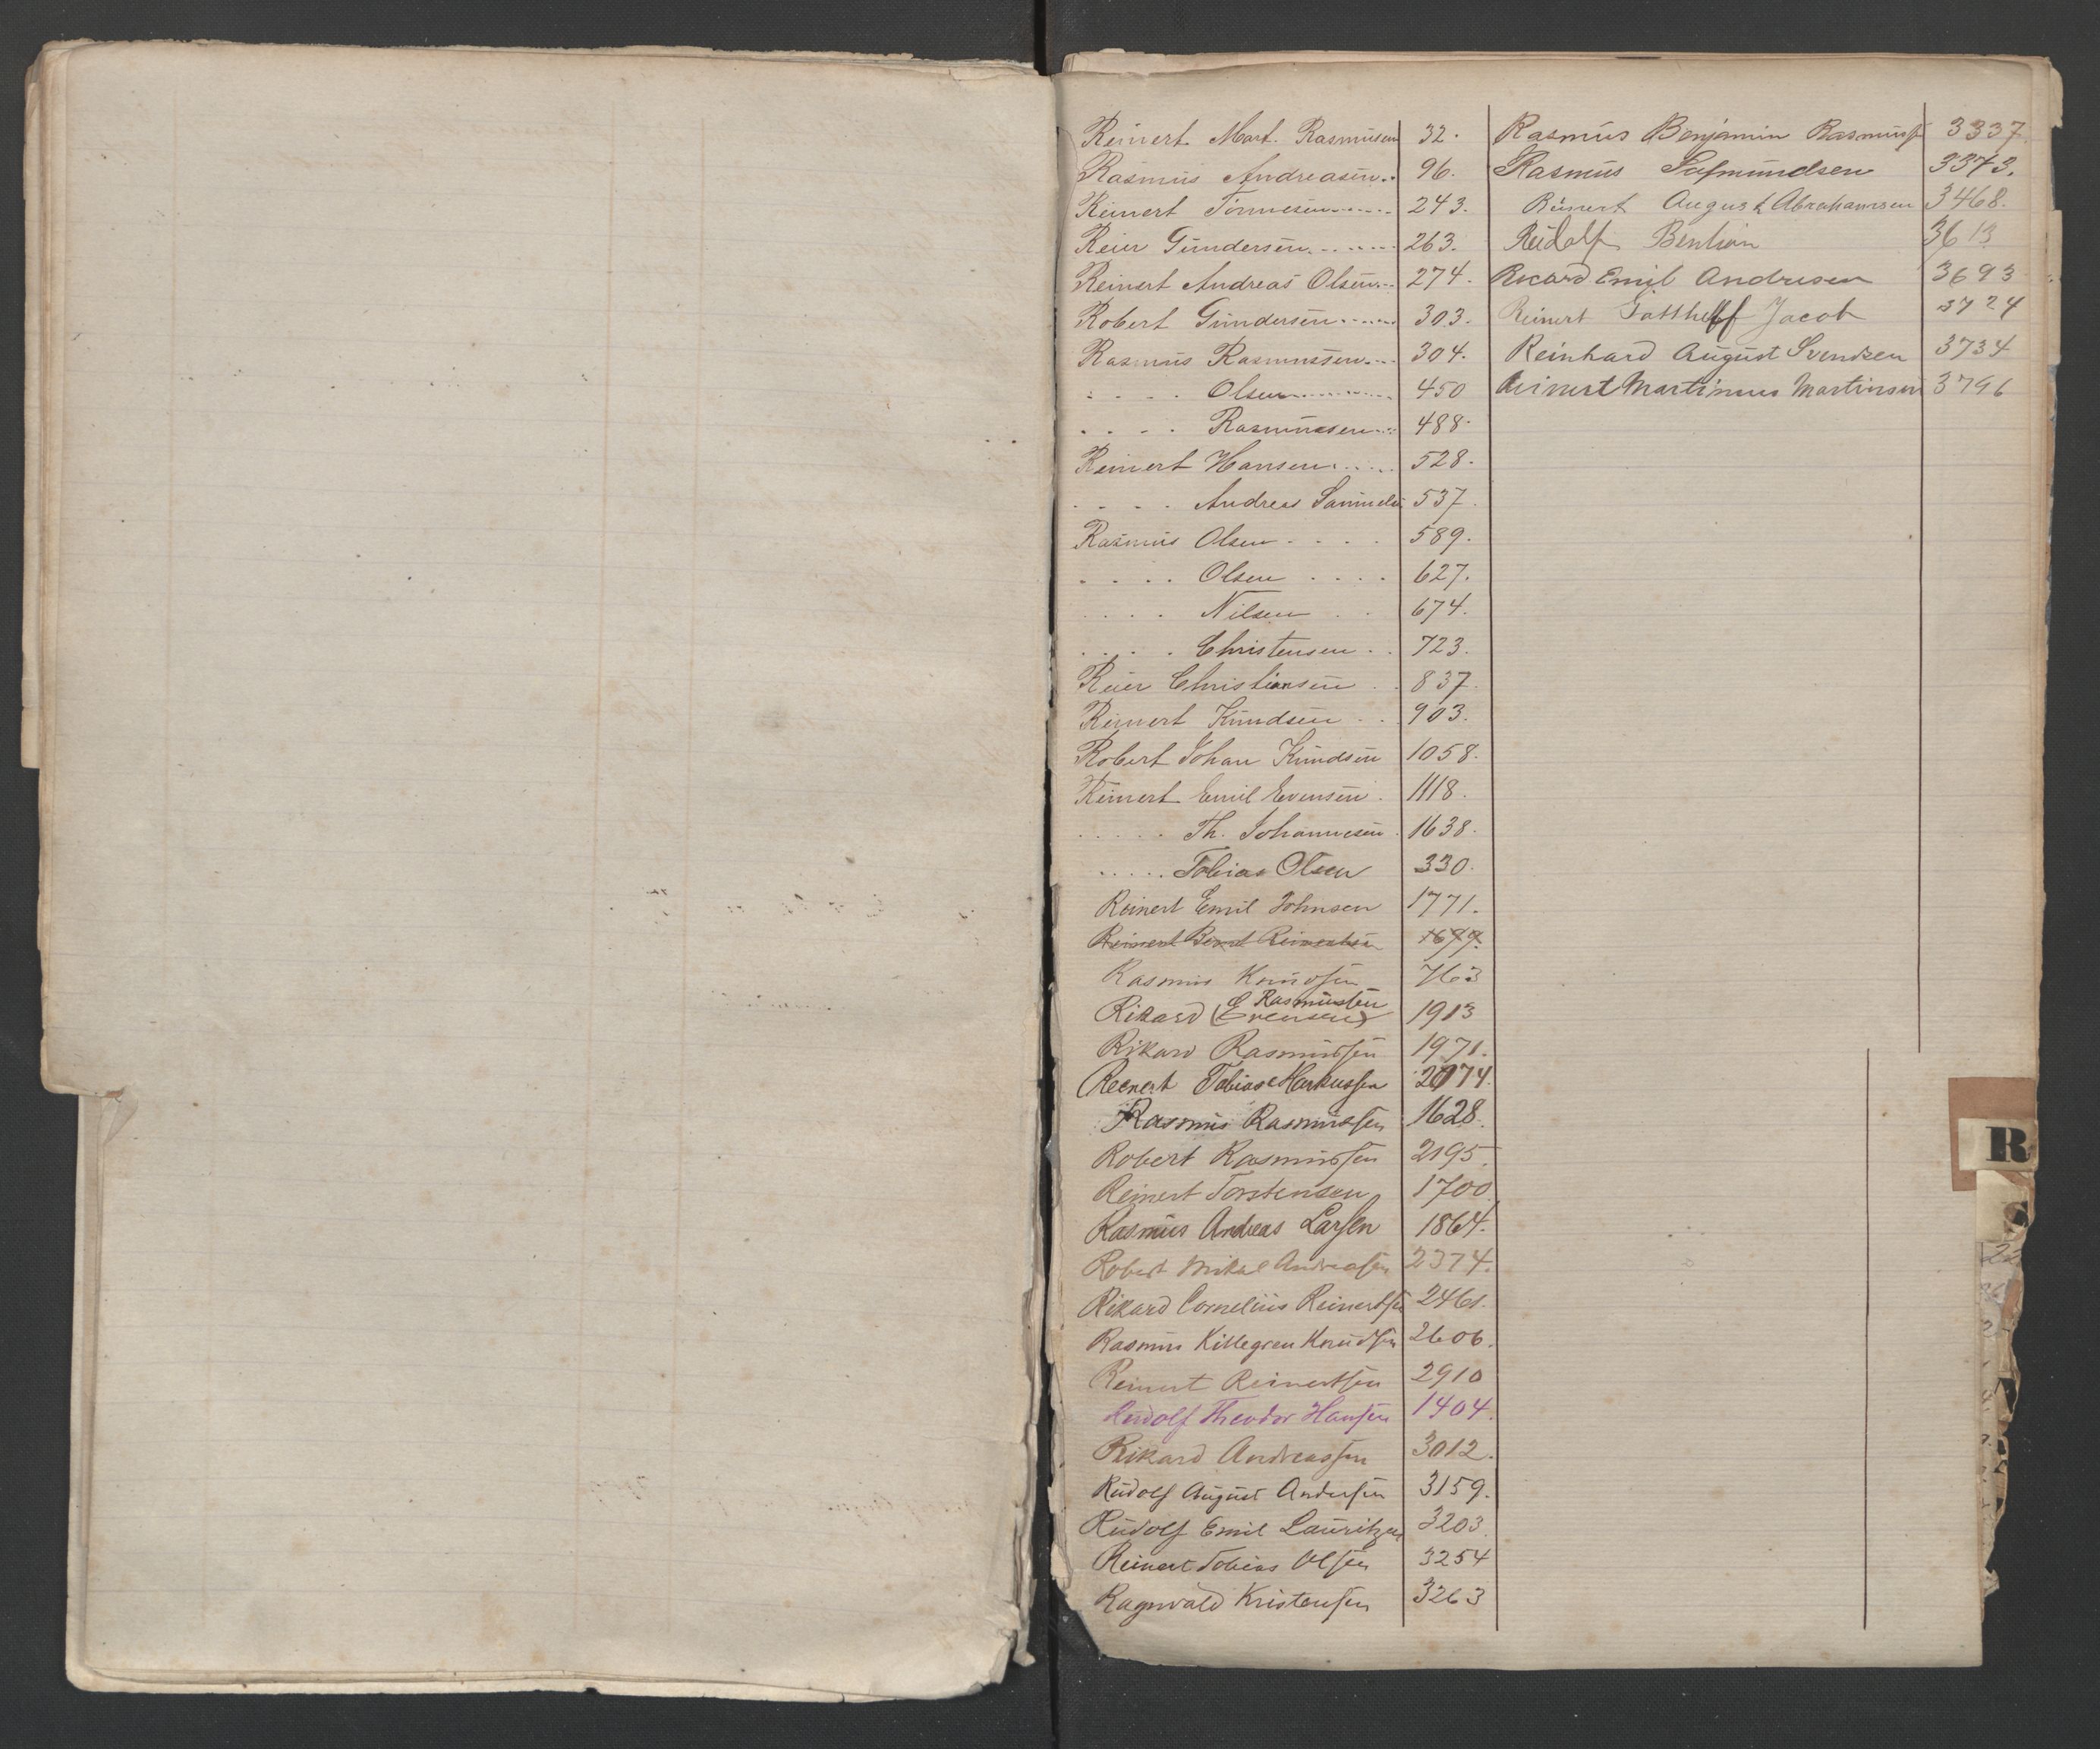 Reinert Mart. Rasmusen 32.
Rasmus Andreasen.. 96.
Reinert Tönnesen........ 243.
Reier Gundersen........ 263.
Reinert Andreas Olsen... 274.
Robert Gundersen....... 303.
Rasmus Rasmussen.... 304.
. . . . Olsen............ 450
. . . . Rasmussen.... 488.
Reinert Hansen...... 528.
. . . . Andreas Samuels 537.
Rasmus Olsen . . . . 589.
. . . . Olsen . . . . 627.
. . . . Nilsen . . 674.
. . . . Christensen . . 723.
Reier Christiansen . . 837.
Reinert Knudsen . . . 903.
Robert Johan Knudsen 1058.
Reinert Emil Evensen . 1118.
. . . . . Th. Johannesen . 1638.
. . . . . Tobias Olsen 330.
Reinert Emil Johnsen 1771.
Reinert Bernt Reinertsen 1699.
Rasmus Knudsen 763
Rasmussen
Rikard (E Evensen) 1913
Rikard Rasmussen 1971.
Reinert Tobias Markussen 2074.
Rasmus Rasmussen 1628.
Robert Rasmussen 2195.
Reinert Torstensen 1700
Rasmus Andreas Larsen 1864.
Robert Mikal Andreasen 2374.
Rikard Cornelius Reinertsen 2461.
Rasmus Killegren Knudsen 2606.
Reinert Reinertsen 2910
Rudolf Theodor Hansen 1404.
Rikard Andreassen 3012.
Rudolf August Andersen 3159.
Rudolf Emil Lauritzen 3203.
Reinert Tobias Olsen 3254
Ragnvald Kristensen 3263
Rasmus Benjamin Rasmuss 3337.
Rasmus Salmundsen 3373.
Reinert August Abrahamsen 3468.
Rudolf Bentsen 3613
Ricard Emil Andresen 3693
Reinert Jacob 3724
Reinhard August Svendsen 3734
Reinert Martinius Martinsen 3796
R
S